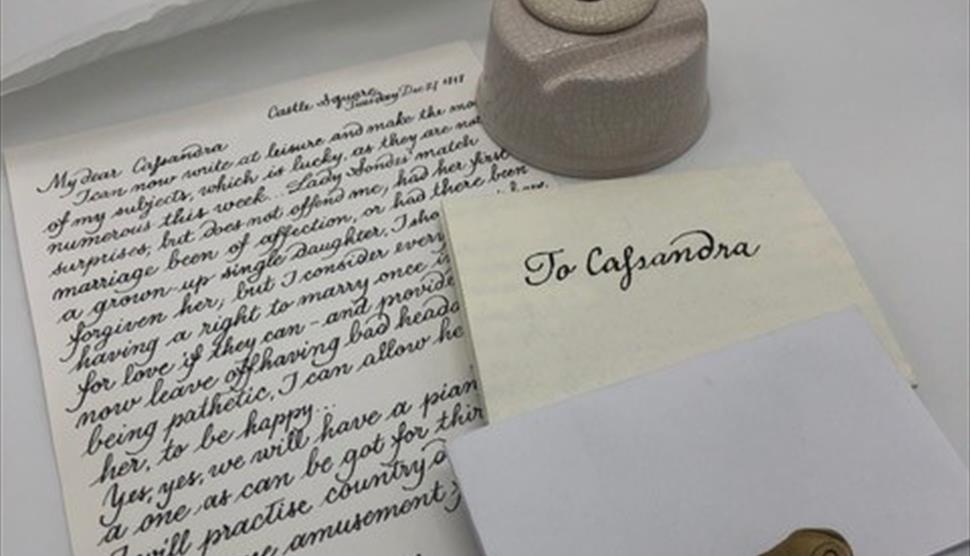 Castle Square
Tuesday Dec 27
My dear Caſsandra
I can now write at leisure and make the mo
of my subjects, which is lucky, as they are not
numerous this week... Lady Sondes' match
surprises, but does not offend me, had her first
marriage been of affection, or had there been
a grown-up single daughter, I sho
forgiven her; but I consider every
having a right to marry once i
for love if they can - and provide
now leave off having bad heada
being pathetic, I can allow he
her, to be happy...
Yes, yes, we will have a pian
a one as can be got for thir
I will practise country d
amusement
To Caſsandra